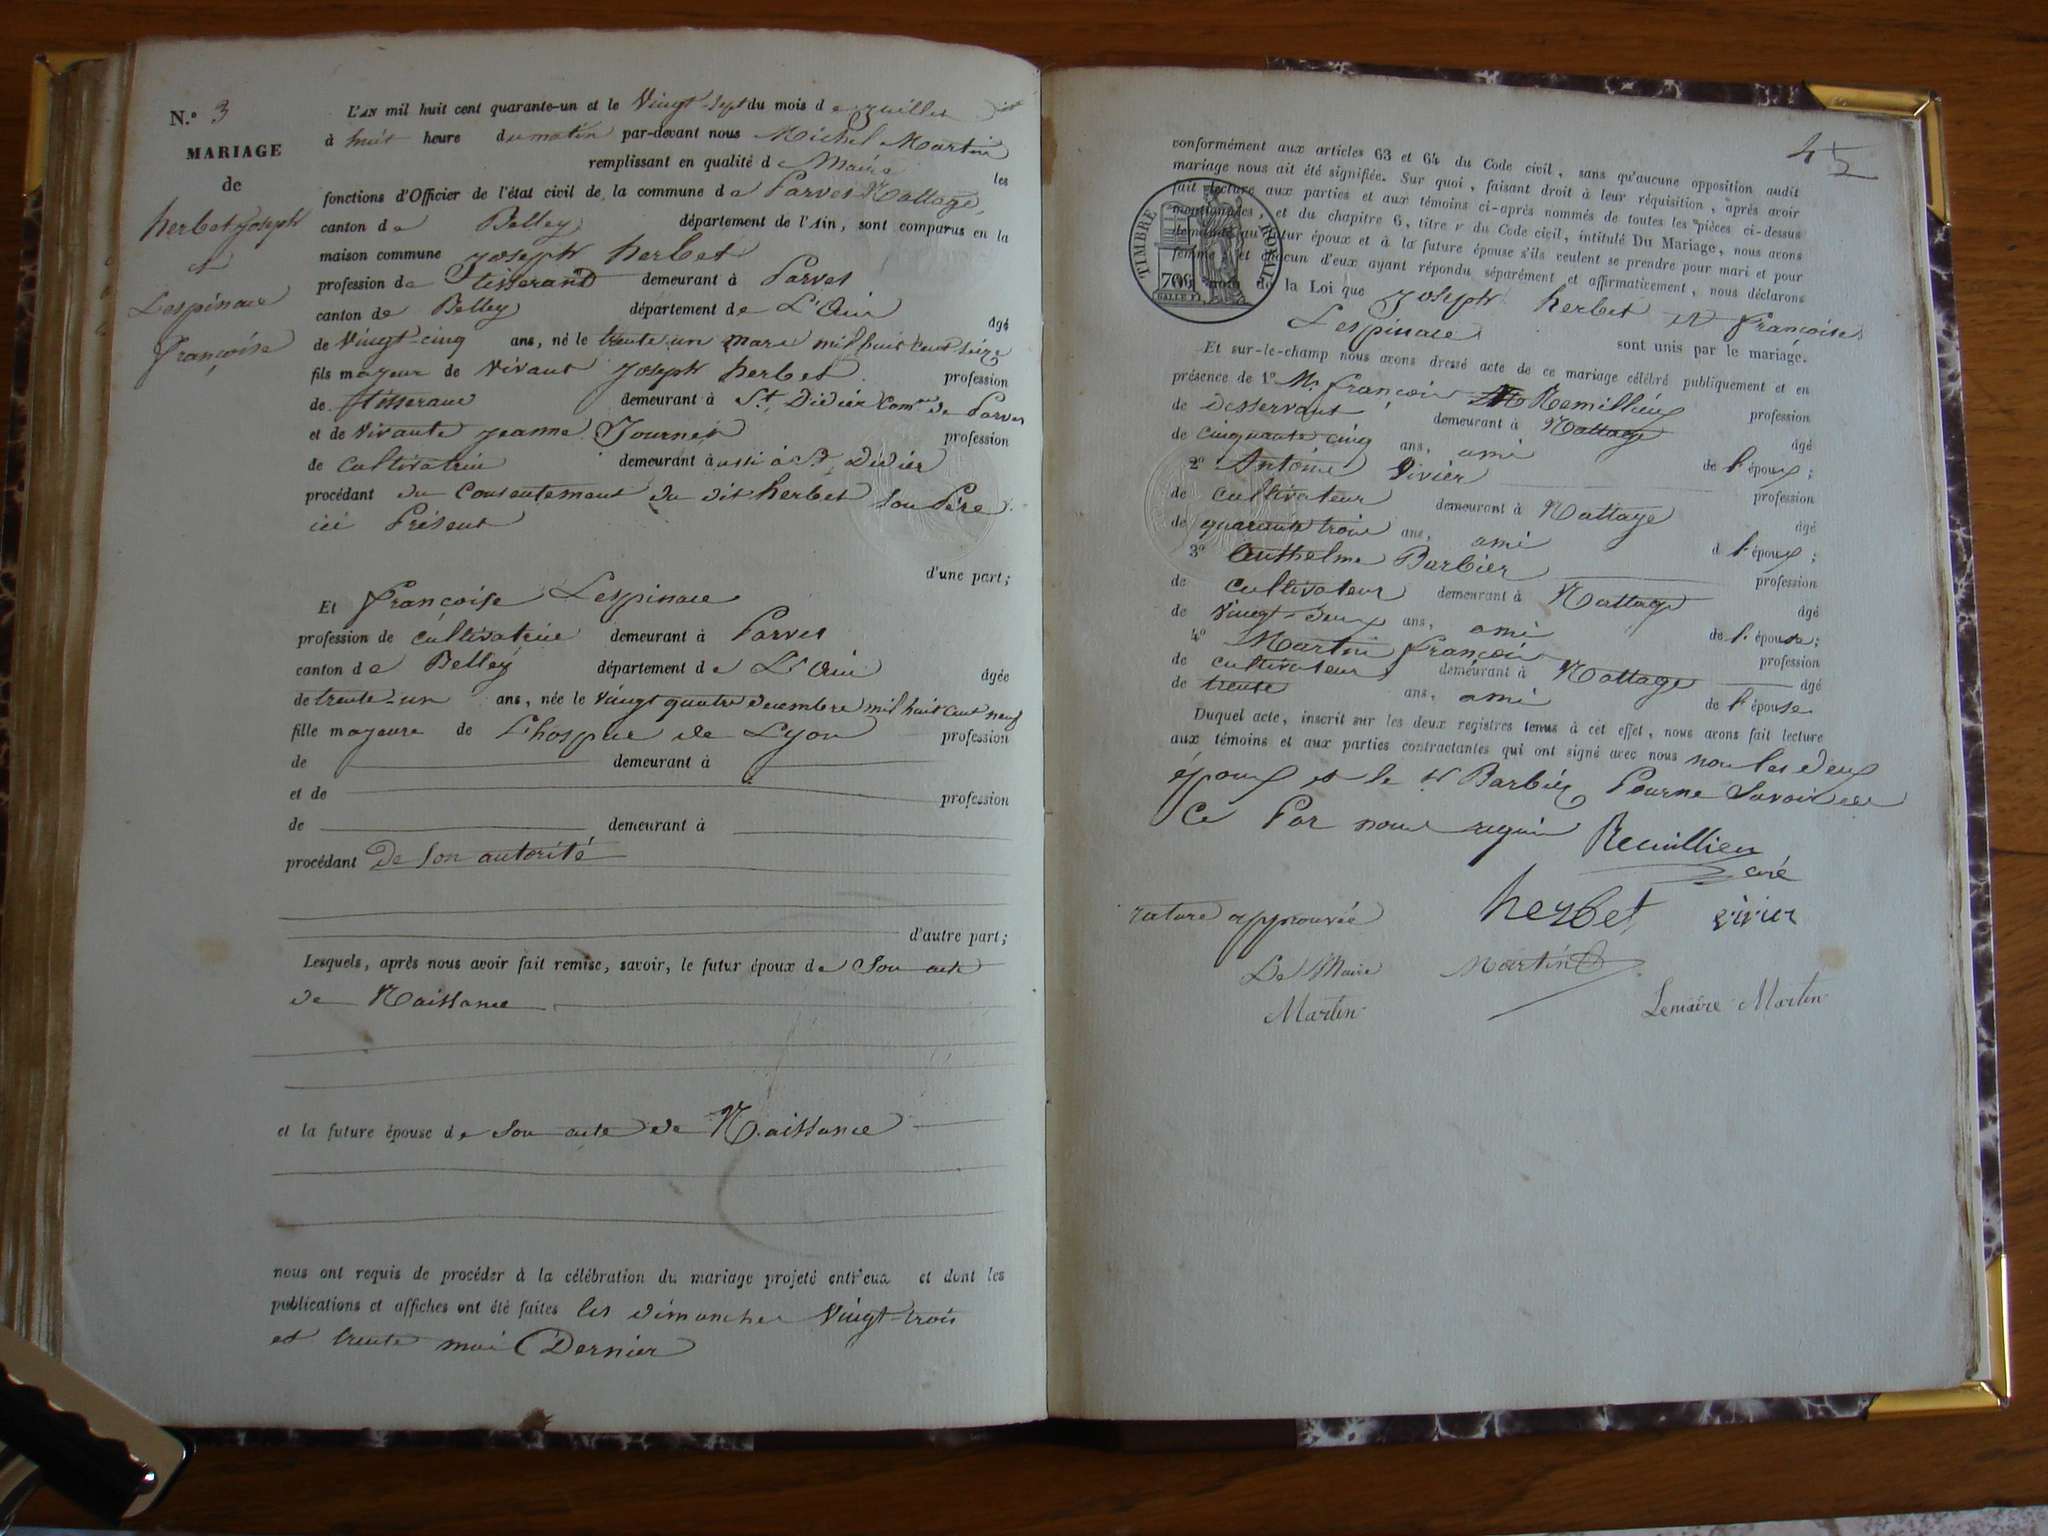 N.º 3
MARIAGE
de
herbet joseph
et
Lespinace
françoise
L'AN mil huit cent quarante-un et le Vingt-sept du mois de juillet
à huit heure du matin par-devant nous Michel Martin
remplissant en qualité de Maire les
fonctions d'Officier de l'état civil de la commune de Parves Nattage,
canton de Belley département de l'Ain, sont comparus en la
maison commune joseph herbet
profession de tisserand demeurant à Parves
canton de Belley département de L'Ain âgé
de Vingt-cinq ans, né le trente un mars mil huit cent seize
fils majeur de vivant joseph herbet profession
de tisserand demeurant à St. Didier Comne de Parves
et de vivante jeanne Journet profession
de cultivatrice demeurant à ussi à St. Didier
procédant du consentement du dit herbet son Père
ici Présent
d'une part;
Et françoise Lespinace
profession de cultivatrice demeurant à Parves
canton de Belley département de L'Ain âgée
de trente-un ans, née le vingt quatre decembre mil huit cent neuf
fille majeure de L'hospice de Lyon profession
de demeurant à
et de profession
de demeurant à
procédant De son autorité
d'autre part;
Lesquels, après nous avoir fait remise, savoir, le futur époux de son acte
de Naissance
et la future épouse de son acte de Naissance
nous ont requis de procéder à la célébration du mariage projeté entr'eux et dont les
publications et affiches ont été faites les dimanches Vingt-trois
et trente mai Dernier
45
conformément aux articles 63 et 64 du Code civil, sans qu'aucune opposition audit
mariage nous ait été signifiée. Sur quoi, faisant droit à leur réquisition, après avoir
fait lecture aux parties et aux témoins ci-après nommés de toutes les pièces ci-dessus
mentionnées, et du chapitre 6, titre v du Code civil, intitulé Du Mariage, nous avons
demandé au futur époux et à la future épouse s'ils veulent se prendre pour mari et pour
femme et chacun d'eux ayant répondu séparément et affirmativement, nous déclarons
au nom de la Loi que joseph herbet et françoise
TIMBRE ROYAL
70c
Lespinace sont unis par le mariage.
Et sur-le-champ nous avons dressé acte de ce mariage célébré publiquement et en
présence de 1º Mr françois Remillieux profession
de desservant demeurant à Nattage âgé
de cinquante cinq ans, ami de l'époux;
2º Antoine Vivier profession
de cultivateur demeurant à Nattage âgé
de quarante trois ans, ami d l'époux;
3º Anthelme Barbier profession
de cultivateur demeurant à Nattage âgé
de vingt-deux ans, ami de l'épouse;
4º Martin françois profession
de cultivateur demeurant à Nattage âgé
de trente ans, ami de l'épouse
Duquel acte, inscrit sur les deux registres tenus à cet effet, nous avons fait lecture
aux témoins et aux parties contractantes qui ont signé avec nous non les deux
époux et le Sr Barbier Pour ne savoir de
Ce Par nous requis Remillieu
curé
rature approuvée herbet vivier
Le Maire Martin
Martin Lemaire Martin